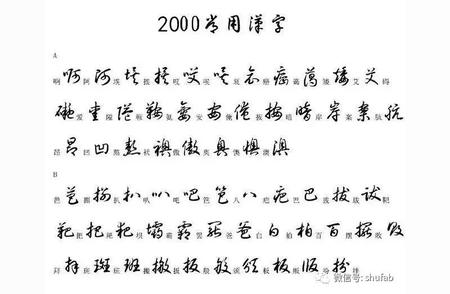 2000常用汉字
A
啊阿埃挨哎唉哀癌蔼矮艾
碍爱隘鞍氨安俺按暗岸案肮
昂凹熬袄傲奥懊澳
B
芭捌扒叭吧笆八疤巴拔跋
靶把耙坝霸罢爸白柏百摆败
拜斑班搬扳般颁板版扮
微信号: shufab